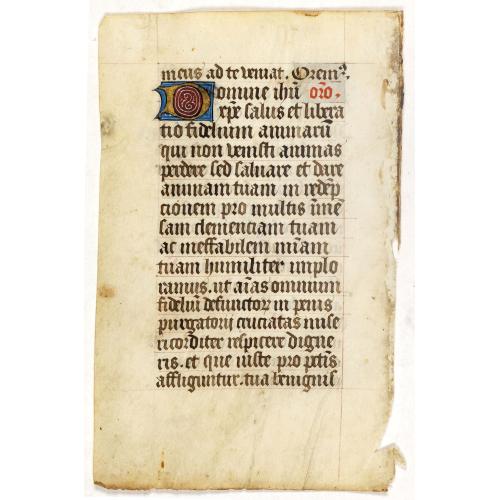 meus ad te veniat. Orem⁹.
Domine ihū orō.
xp̄e salus et libera
tio fidelium animarū
qui non venisti animas
perdere sed salvare et dare
animam tuam in redēp
cionem pro multis īmē
sam clemenciam tuam
ac ineffabilem mīam
tuam humiliter implo
ramus. ut aīas omnium
fideliū defunctor in penis
purgatorij cruciatas mise
ricorditer respicere digne
ris. et que iuste pro pctīs
affliguntur. tua benignis